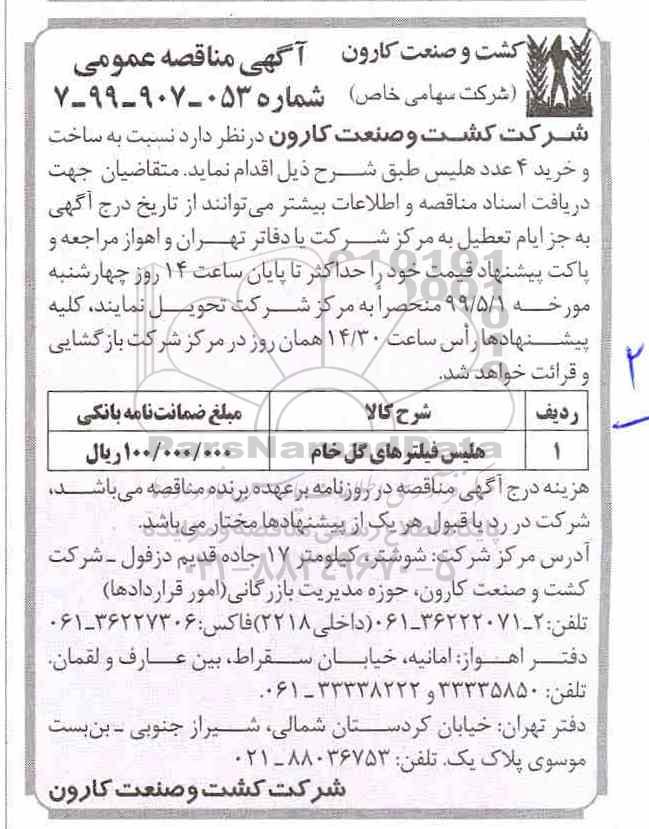 کشت و صنعت کارون
(شرکت سهامی خاص)
آگهی مناقصه عمومی
شماره ۰۵۳-۹۰۷-۹۹-۷
شرکت کشت و صنعت کارون در نظر دارد نسبت به ساخت
و خرید ۴ عدد هلیس طبق شرح ذیل اقدام نماید. متقاضیان جهت
دریافت اسناد مناقصه و اطلاعات بیشتر می‌توانند از تاریخ درج آگهی
به جز ایام تعطیل به مرکز شرکت یا دفاتر تهران و اهواز مراجعه و
پاکت پیشنهاد قیمت خود را حداکثر تا پایان ساعت ۱۴ روز چهارشنبه
مورخه ۹۹/۵/۱ منحصراً به مرکز شرکت تحویل نمایند، کلیه
پیشنهادها رأس ساعت ۱۴/۳۰ همان روز در مرکز شرکت بازگشایی
و قرائت خواهد شد.
ردیف شرح کالا مبلغ ضمانت‌نامه بانکی
۱ هلیس فیلترهای گل خام ۱۰۰/۰۰۰/۰۰۰ ریال
ParsNamadData
هزینه درج آگهی مناقصه در روزنامه بر عهده برنده مناقصه می‌باشد،
شرکت در رد یا قبول هر یک از پیشنهادها مختار می‌باشد.
پایگاه اطلاع رسانی مناقصه و مزایده
آدرس مرکز شرکت: شوشتر، کیلومتر ۱۷ جاده قدیم دزفول - شرکت
۰۲۱-۸۸۳۴۹۶۷۰-۵
کشت و صنعت کارون، حوزه مدیریت بازرگانی(امور قراردادها)
تلفن: ۲-۳۶۲۲۲۰۷۱-۰۶۱(داخلی ۲۲۱۸) فاکس: ۳۶۲۲۷۳۰۶-۰۶۱
دفتر اهواز: امانیه، خیابان سقراط، بین عارف و لقمان.
تلفن: ۳۳۳۳۵۸۵۰ و ۳۳۳۳۸۲۲۲ - ۰۶۱.
دفتر تهران: خیابان کردستان شمالی، شیراز جنوبی - بن‌بست
موسوی پلاک یک. تلفن: ۸۸۰۳۶۷۵۳ - ۰۲۱
شرکت کشت و صنعت کارون
۲